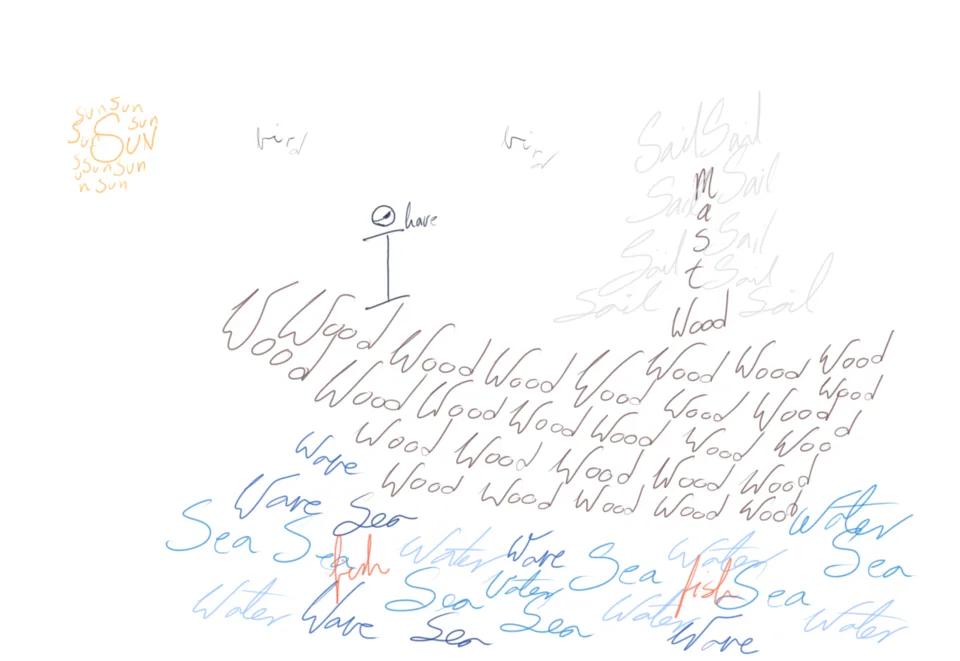 sun sun
Sun sun
SUN
sun sun
sun sun
bird
bird
Sail Sail
Sail Sail
Sail Sail
Sail Sail
Sail Sail
Mast
have
I
Wood
Wood Wood
Wood Wood Wood Wood Wood Wood
Wood Wood Wood Wood Wood Wood Wood
Wood Wood Wood Wood Wood Wood
Wood Wood Wood Wood Wood
Wave
Wave Sea Water
Sea Sea fish Water Wave Sea Water Sea
Sea Water fish Sea
Water Wave Sea Sea Water Wave Water